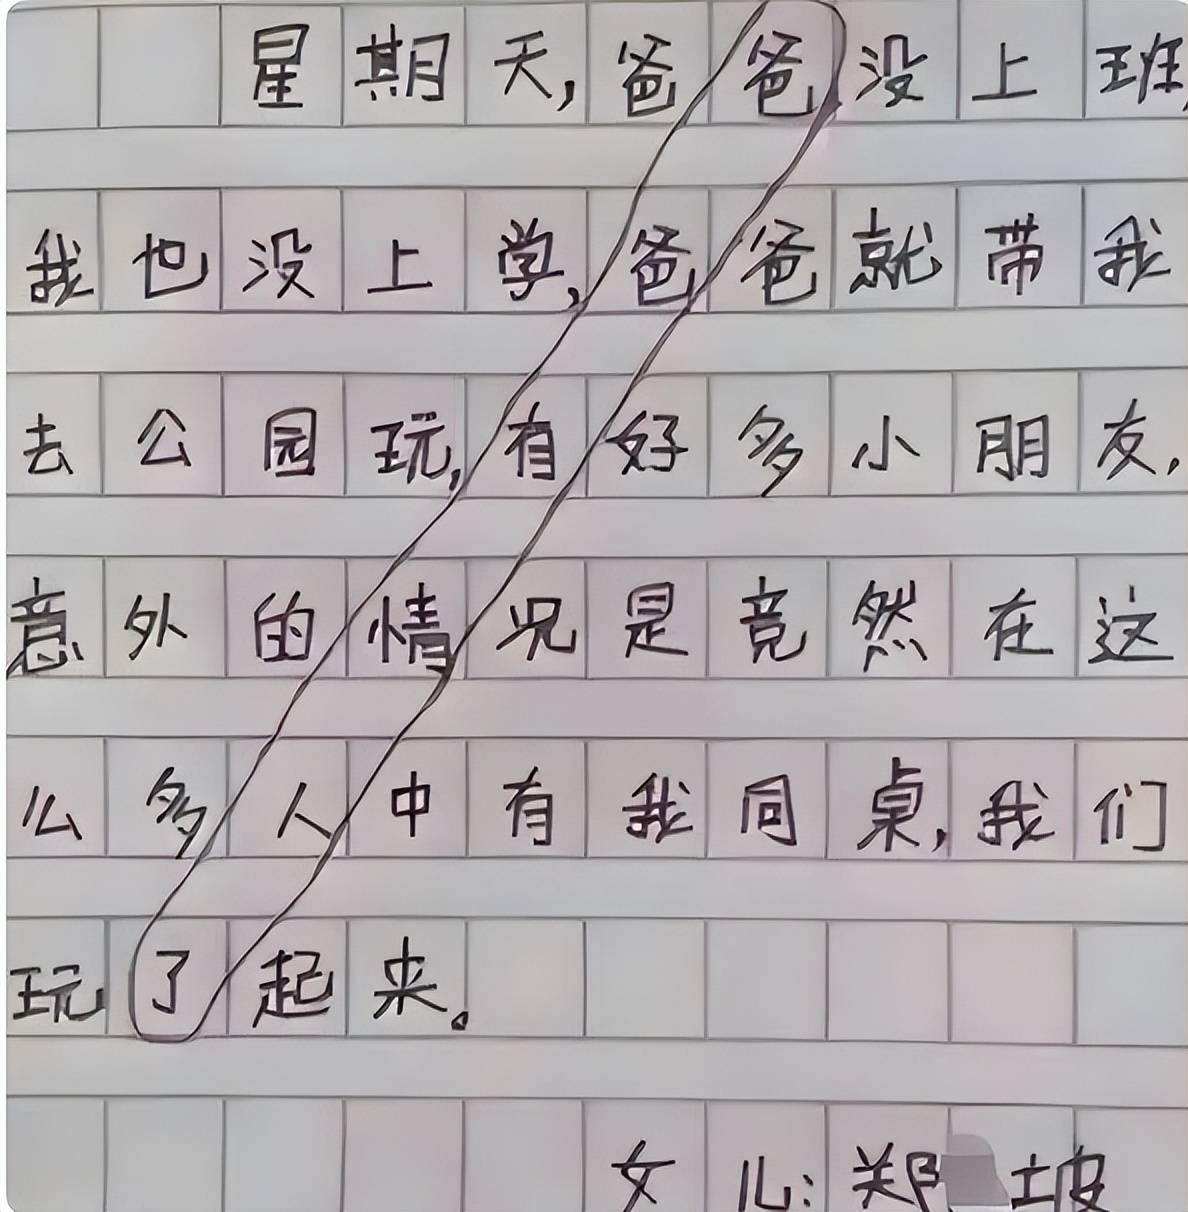 星期天，爸爸没上班，
我也没上学，爸爸就带我
去公园玩，有好多小朋友，
意外的情况是竟然在这
么多人中有我同桌，我们
玩了起来。
女儿：郑 坡